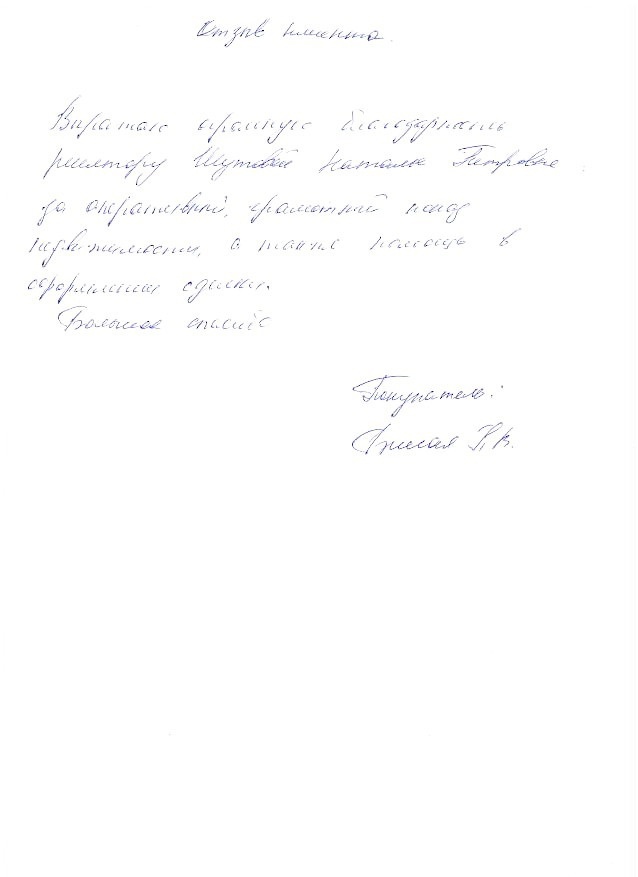 Отзыв клиента.
Выражаю огромную благодарность
риелтору Шутовой Наталье Петровне
за оперативный, грамотный показ
недвижимости, а также помощь в
оформлении сделки.
Большое спасибо
Покупатель:
В.